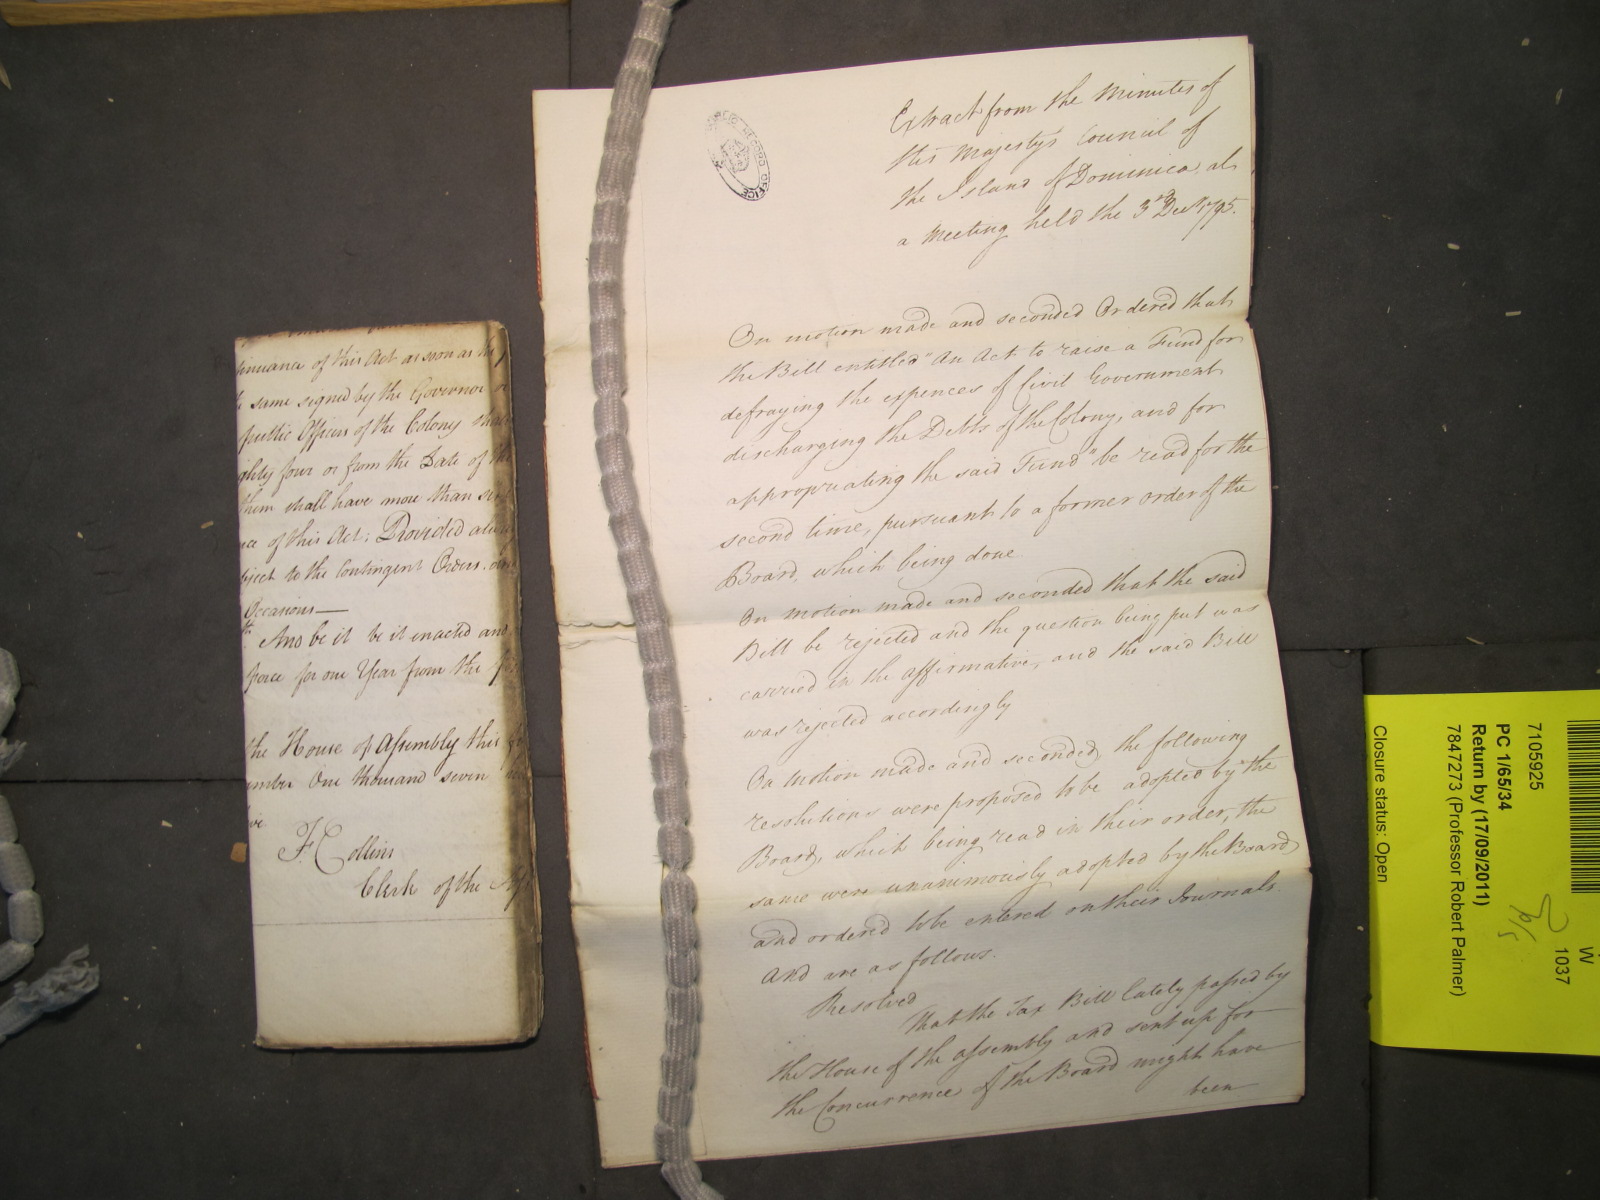 tinuance of this Act as soon as the
same signed by the Governor or
public Officers of the Colony shall
eighty four or from the Date of the
them shall have more than
ce of this Act; Provided
bject to the Contingent Orders
Occasions—
And be it be it enacted and
force for one Year from the
the House of Assembly this
ember One thousand seven
ve
F Collins
Clerk of the
PUBLIC RECORD OFFICE
Extract from the Minutes of
His Majesty's Council of
the Island of Dominica, at
a Meeting held the 3rd Decr 1795.
On motion made and seconded Ordered that
the Bill entitled "An Act to raise a Fund for
defraying the expences of Civil Government
discharging the Debts of the Colony, and for
appropriating the said Fund" be read for the
second time, pursuant to a former order of the
Board, which being done
On motion made and seconded that the said
Bill be rejected and the question being put was
carried in the affirmative, and the said Bill
was rejected accordingly
On motion made and seconded, the following
resolutions were proposed to be adopted by the
Board, which being read in their order, the
same were unanimously adopted by the Board
and ordered to be entered on their Journals.
and are as follows.
Resolved
That the Tax Bill lately passed by
the House of the assembly and sent up for
the Concurrence of the Board might have
been
W
1037
7105925
PC 1/65/34
Return by (17/09/2011)
7847273 (Professor Robert Palmer)
Closure status: Open